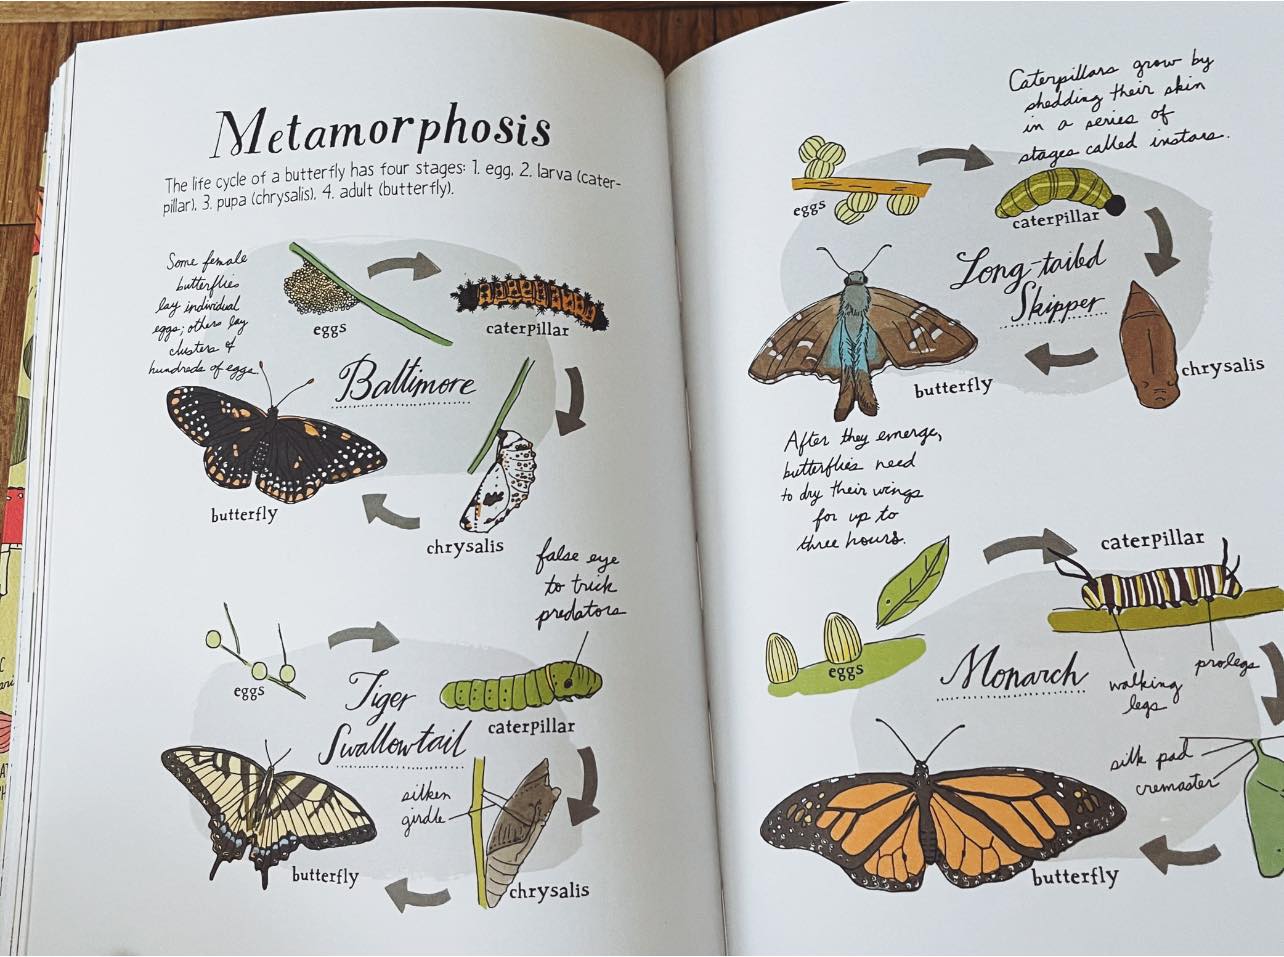 Metamorphosis
The life cycle of a butterfly has four stages: 1. egg, 2. larva (cater-
pillar), 3. pupa (chrysalis), 4. adult (butterfly).
Some female
butterflies
lay individual
eggs; others lay
clusters of
hundreds of eggs.
eggs
caterpillar
Baltimore
butterfly
chrysalis
false eye
to trick
predators
eggs
Tiger
Swallowtail
caterpillar
silken
girdle
butterfly
chrysalis
Caterpillars grow by
shedding their skin
in a series of
stages called instars.
eggs
caterpillar
Long-tailed
Skipper
chrysalis
butterfly
After they emerge,
butterflies need
to dry their wings
for up to
three hours.
caterpillar
eggs
Monarch
walking
legs
prolegs
silk pad
cremaster
butterfly